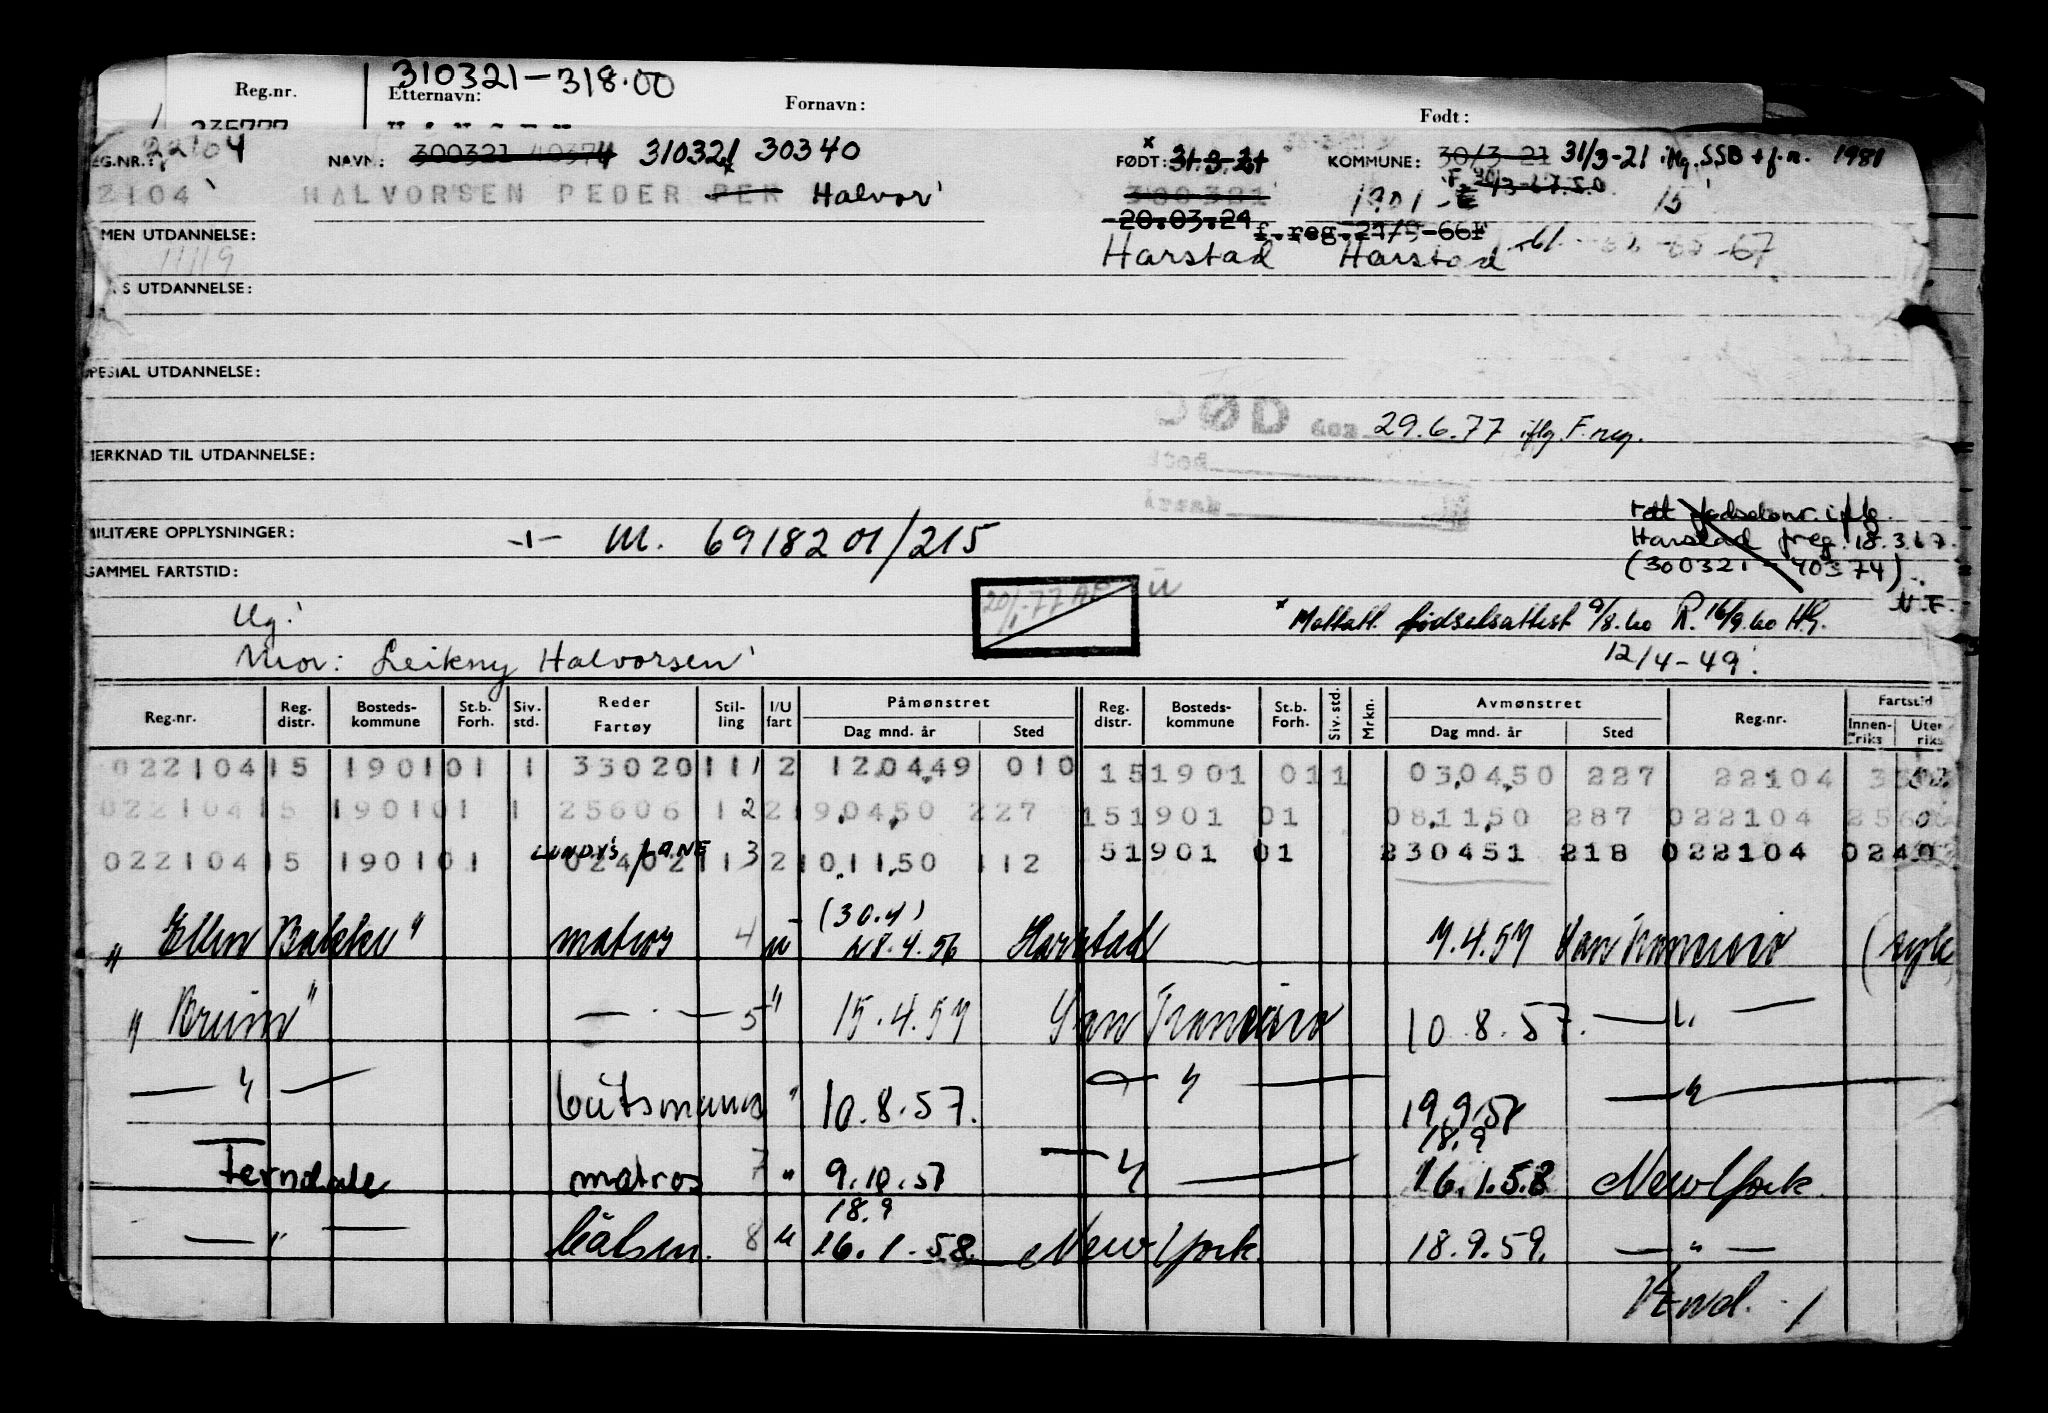 310321-318.00
Reg.nr. Etternavn: Fornavn: Født:
22104 300321 40374 310321 30340 FØDT: 31.3.21 KOMMUNE: 30/3-21 31/3-21 iflg. SSB + f.n. 1981
EG.NR.: NAVN:
2104 HALVORSEN PEDER PER Halvor 300321 1901 15
20.03.24 f.reg.21/9-66F
MEN UTDANNELSE: Harstad Harstad -61 -65 -67
S UTDANNELSE:
PESIAL UTDANNELSE:
DØD den 29.6.77 iflg F.reg.
MERKNAD TIL UTDANNELSE:
Født fødselsnr. iflg.
MILITÆRE OPPLYSNINGER: -1- M. 6918201/215 Harstad freg. 18.3.67.
GAMMEL FARTSTID: (300321 - 40374)
20/1-77 U N.F.
Ug. * Mottatt fødselsattest 9/8.60 R. 16/9.60 H.G.
Mor: Leikny Halvorsen 12/4-49
Reg.nr. Reg. distr. Bosteds- kommune St.b. Forh. Siv. std. Reder Fartøy Stil- ling I/U fart Påmønstret Reg. distr. Bosteds- kommune St.b. Forh. Siv. std. Mrkn. Avmønstret Reg.nr. Fartstid
Dag mnd. år Sted Dag mnd. år Sted Innen- riks Uten riks
022104 15 1901 01 1 33020 11 1 2 12.04.49 010 15 1901 01 1 03.04.50 227 22104
022104 15 1901 01 1 25606 1 2 2 19.04.50 227 15 1901 01 08.11.50 287 022104
LUNDY'S LANE
022104 15 1901 01 02402 11 3 2 10.11.50 112 5 1901 01 230451 218 022104
(30.4)
"Ellen Bakke" matros 4 u 28.4.56 Harstad 7.4.57 San Francisco (syk
"Bruin" — " — 5 " 15.4.57 San Francisco 10.8.57. — " —
— " — båtsmann " 10.8.57. — " — 19.9.57 — " —
18.9
Ferndale matros 7 " 9.10.57 — " — 16.1.58 New York
18.9
— " — båtsm. 8 u 16.1.58. New York 18.9.59. — " —
Vend. /